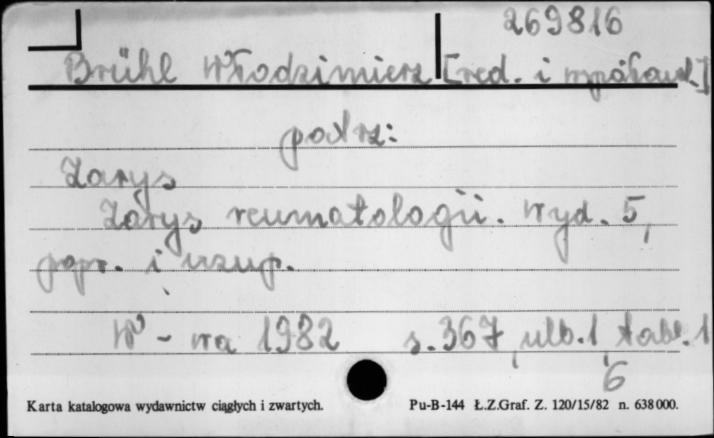 269816
Brühl Włodzimierz [red. i współaut.]
patrz:
Zarys
Zarys reumatologii. Wyd. 5,
popr. i uzup.
W-wa 1982 s. 367, ulb. 1 tabl. 1
6
Karta katalogowa wydawnictw ciągłych i zwartych. Pu-B-144 Ł.Z.Graf. Z. 120/15/82 n. 638000.